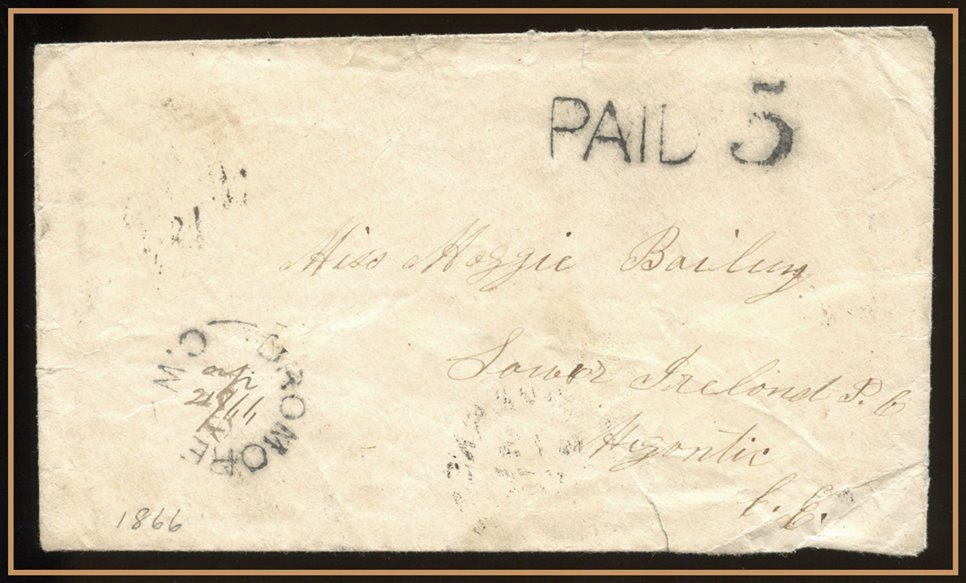 PAID 5
Miss Maggie Bailey
Lower Ireland P. O
Megantic
C. E.
DROMORE
C.W
1866